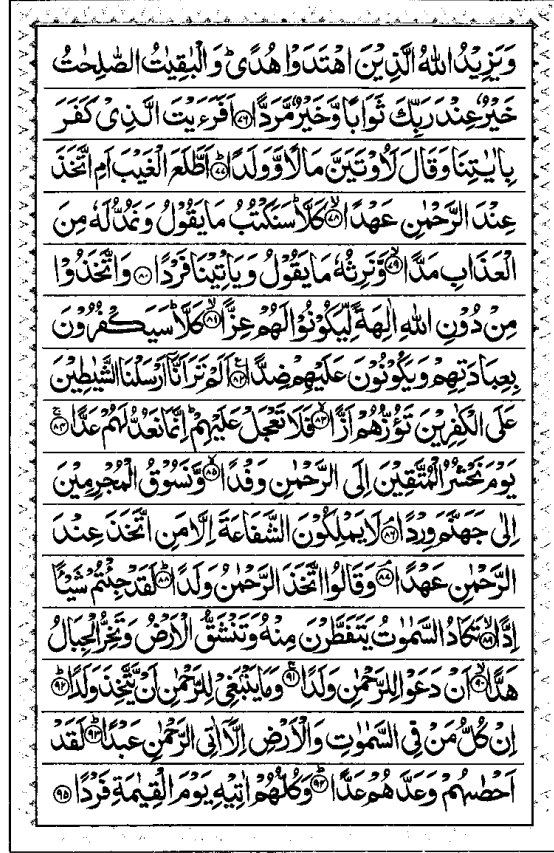 وَيَزِيْدُ اللّٰهُ الَّذِيْنَ اهْتَدَوْا هُدًىؕ وَالْبٰقِيٰتُ الصّٰلِحٰتُ
خَيْرٌ عِنْدَ رَبِّكَ ثَوَابًا وَّخَيْرٌ مَّرَدًّا ﴿۷۶﴾ اَفَرَءَيْتَ الَّذِيْ كَفَرَ
بِاٰيٰتِنَا وَقَالَ لَاُوْتَيَنَّ مَالًا وَّوَلَدًاؕ ﴿۷۷﴾ اَطَّلَعَ الْغَيْبَ اَمِ اتَّخَذَ
عِنْدَ الرَّحْمٰنِ عَهْدًاۙ ﴿۷۸﴾ كَلَّاؕ سَنَكْتُبُ مَا يَقُوْلُ وَنَمُدُّ لَهٗ مِنَ
الْعَذَابِ مَدًّاۙ ﴿۷۹﴾ وَّنَرِثُهٗ مَا يَقُوْلُ وَيَاْتِيْنَا فَرْدًا ﴿۸۰﴾ وَاتَّخَذُوْا
مِنْ دُوْنِ اللّٰهِ اٰلِهَةً لِّيَكُوْنُوْا لَهُمْ عِزًّاۙ ﴿۸۱﴾ كَلَّاؕ سَيَكْفُرُوْنَ
بِعِبَادَتِهِمْ وَيَكُوْنُوْنَ عَلَيْهِمْ ضِدًّا ﴿۸۲﴾ اَلَمْ تَرَ اَنَّاۤ اَرْسَلْنَا الشَّيٰطِيْنَ
عَلَى الْكٰفِرِيْنَ تَؤُزُّهُمْ اَزًّاۙ ﴿۸۳﴾ فَلَا تَعْجَلْ عَلَيْهِمْؕ اِنَّمَا نَعُدُّ لَهُمْ عَدًّاۚ ﴿۸۴﴾
يَوْمَ نَحْشُرُ الْمُتَّقِيْنَ اِلَى الرَّحْمٰنِ وَفْدًاۙ ﴿۸۵﴾ وَّنَسُوْقُ الْمُجْرِمِيْنَ
اِلٰى جَهَنَّمَ وِرْدًاۘ ﴿۸۶﴾ لَا يَمْلِكُوْنَ الشَّفَاعَةَ اِلَّا مَنِ اتَّخَذَ عِنْدَ
الرَّحْمٰنِ عَهْدًاۘ ﴿۸۷﴾ وَقَالُوا اتَّخَذَ الرَّحْمٰنُ وَلَدًاؕ ﴿۸۸﴾ لَقَدْ جِئْتُمْ شَيْـًٔا
اِدًّاۙ ﴿۸۹﴾ تَكَادُ السَّمٰوٰتُ يَتَفَطَّرْنَ مِنْهُ وَتَنْشَقُّ الْاَرْضُ وَتَخِرُّ الْجِبَالُ
هَدًّاۙ ﴿۹۰﴾ اَنْ دَعَوْا لِلرَّحْمٰنِ وَلَدًاۚ ﴿۹۱﴾ وَمَا يَنْۢبَغِيْ لِلرَّحْمٰنِ اَنْ يَّتَّخِذَ وَلَدًاؕ ﴿۹۲﴾
اِنْ كُلُّ مَنْ فِي السَّمٰوٰتِ وَالْاَرْضِ اِلَّاۤ اٰتِي الرَّحْمٰنِ عَبْدًاؕ ﴿۹۳﴾ لَقَدْ
اَحْصٰىهُمْ وَعَدَّهُمْ عَدًّاؕ ﴿۹۴﴾ وَكُلُّهُمْ اٰتِيْهِ يَوْمَ الْقِيٰمَةِ فَرْدًا ﴿۹۵﴾